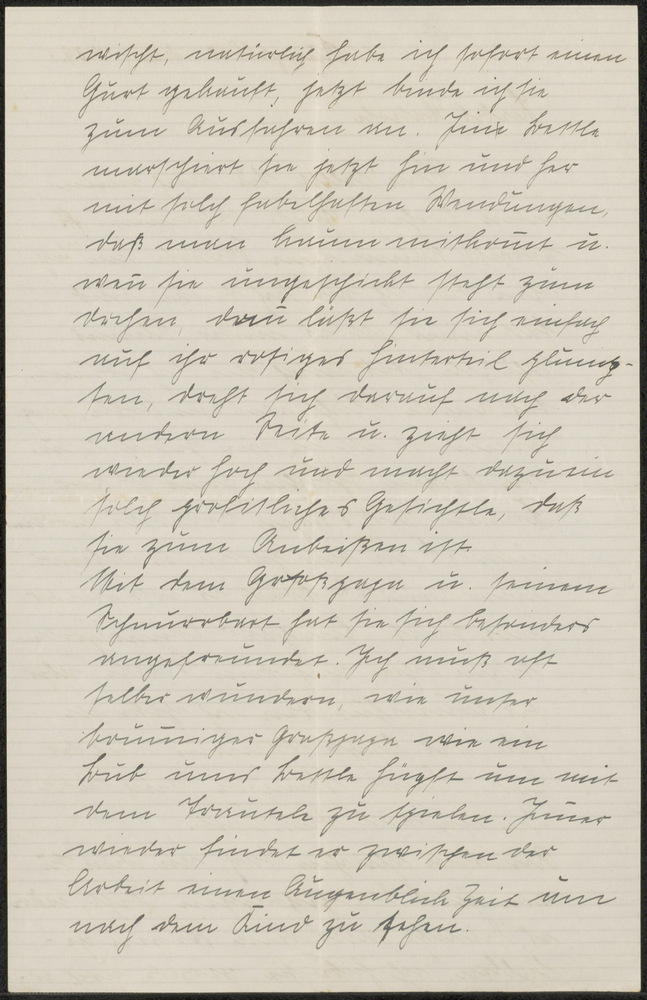 wischt, natürlich habe ich sofort einen
Gurt gekauft, jetzt binde ich sie
zum Ausfahren an. Im Bettle
marschiert sie jetzt hin und her
mit solch fabelhaften Wendungen,
daß man kaum mitkom̄t u.
wen̄ sie ungeschickt steht zum
drehen, dan̄ läßt sie sich einfach
auf ihr rosiges Hinterteil plump-
sen, dreht sich darauf nach der
andern Seite u. zieht sich
wieder hoch und macht dazu ein
solch profitliches Gesichtle, daß
sie zum Anbeißen ist.
Mit dem Großpapa u. seinem
Schnurrbart hat sie sich besonders
angefreundet. Ich muß oft
selber wundern, wie unser
Großpapa wie ein
Bub ums Bettle hüpft um mit
dem Trautele zu spielen. Im̄er
wieder findet er zwischen der
Arbeit einen Augenblick Zeit um
nach dem Kind zu sehen.